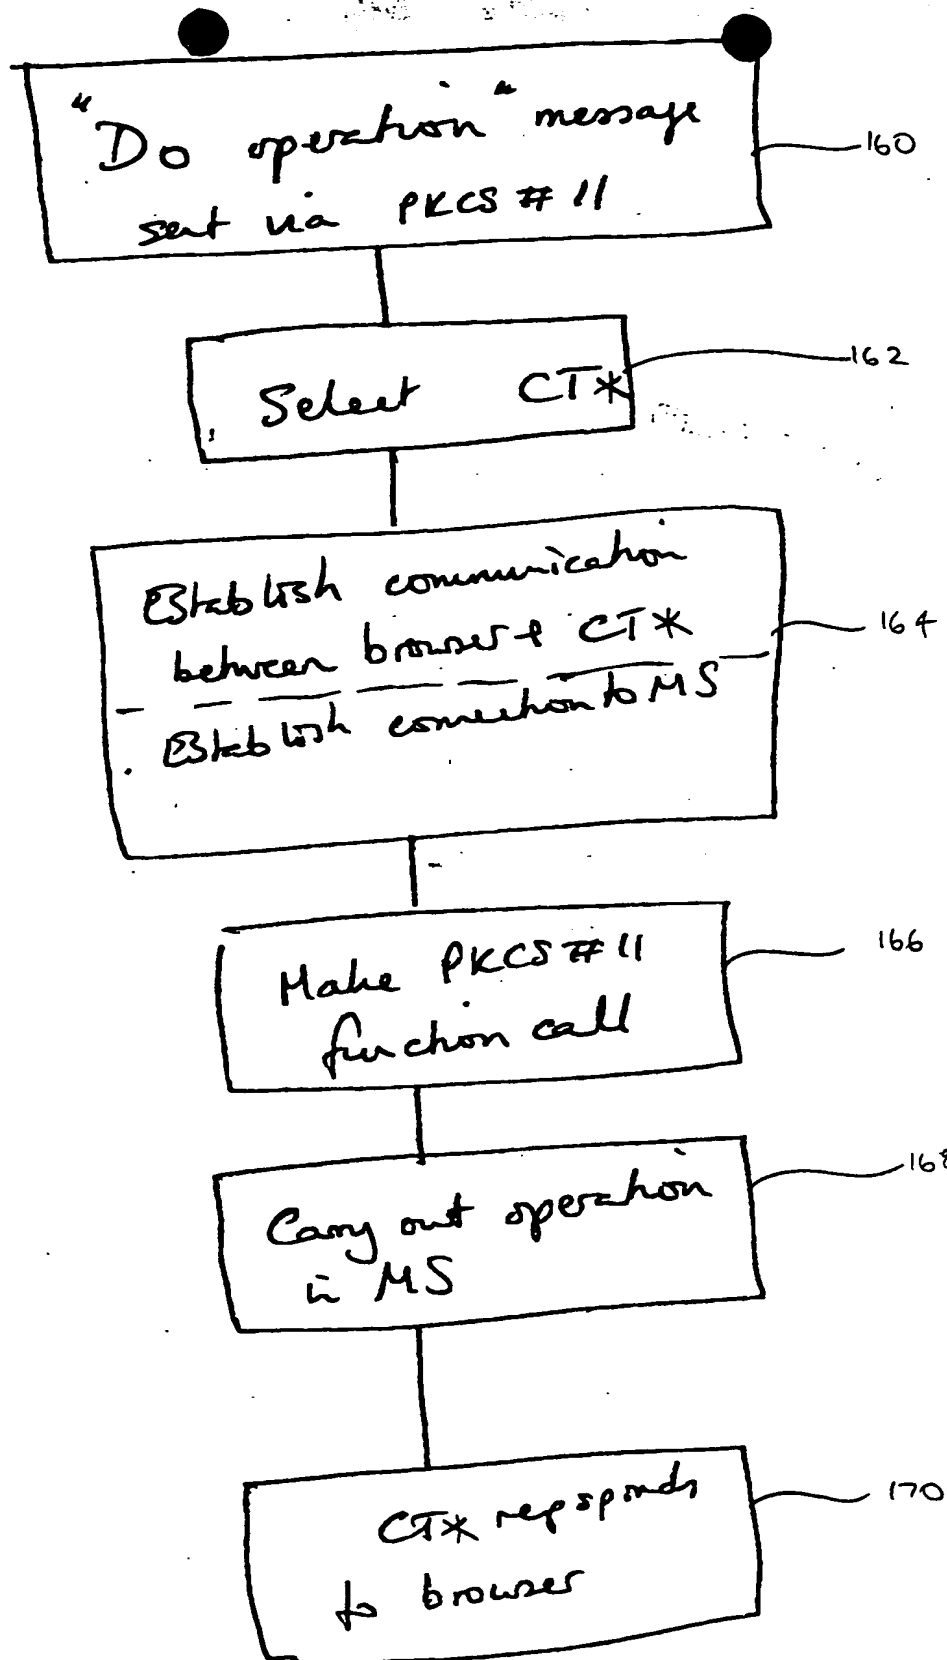 "Do operation" message
sent via PKCS # 11
160
Select CT*
162
Establish communication
between browser & CT*
164
Establish connection to MS
Make PKCS #11
function call
166
Carry out operation
in MS
168
CT* responds
to browser
170